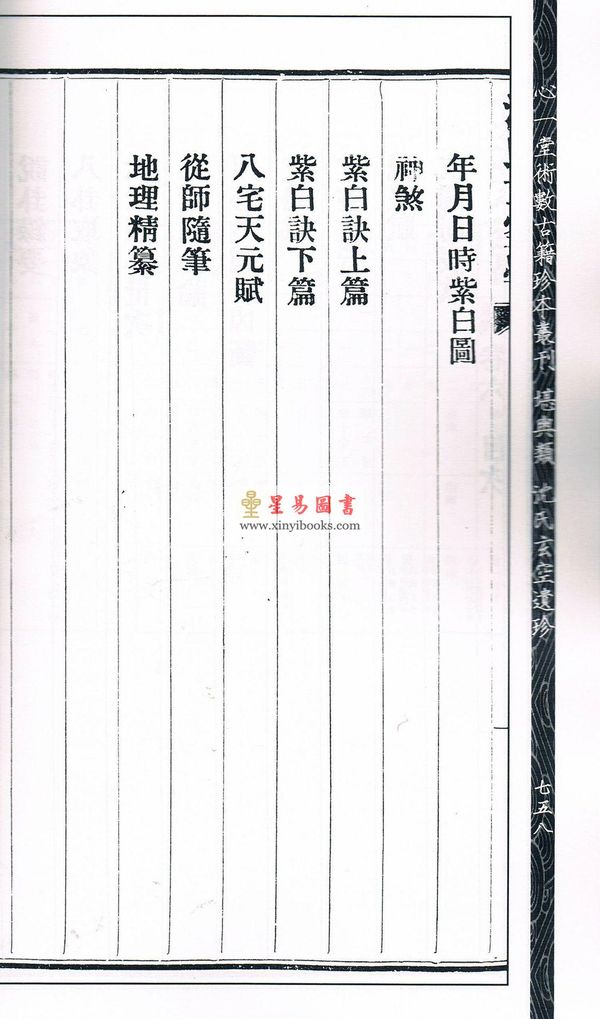 心一堂術數古籍珍本叢刊 堪輿類 沈氏玄空遺珍
七五八
年月日時紫白圖
神煞
紫白訣上篇
紫白訣下篇
八宅天元賦
從師隨筆
地理精纂
星易圖書
www.xinyibooks.com